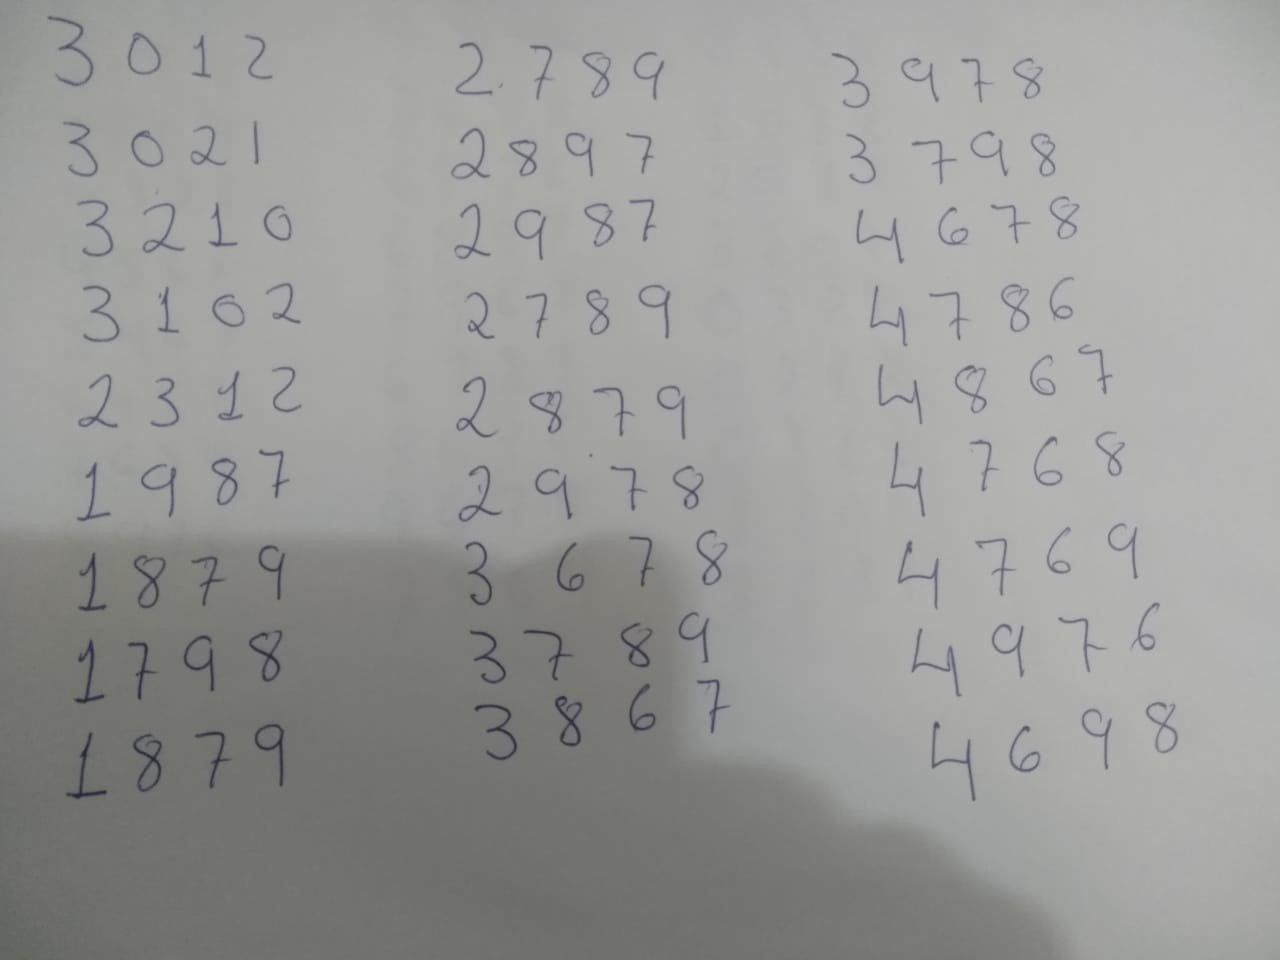 3 0 1 2
3 0 2 1
3 2 1 0
3 1 0 2
2 3 1 2
1 9 8 7
1 8 7 9
1 7 9 8
1 8 7 9
2.7 8 9
2 8 9 7
2 9 8 7
2 7 8 9
2 8 7 9
2 9 7 8
3 6 7 8
3 7 8 9
3 8 6 7
3 9 7 8
3 7 9 8
4 6 7 8
4 7 8 6
4 8 6 7
4 7 6 8
4 7 6 9
4 9 7 6
4 6 9 8